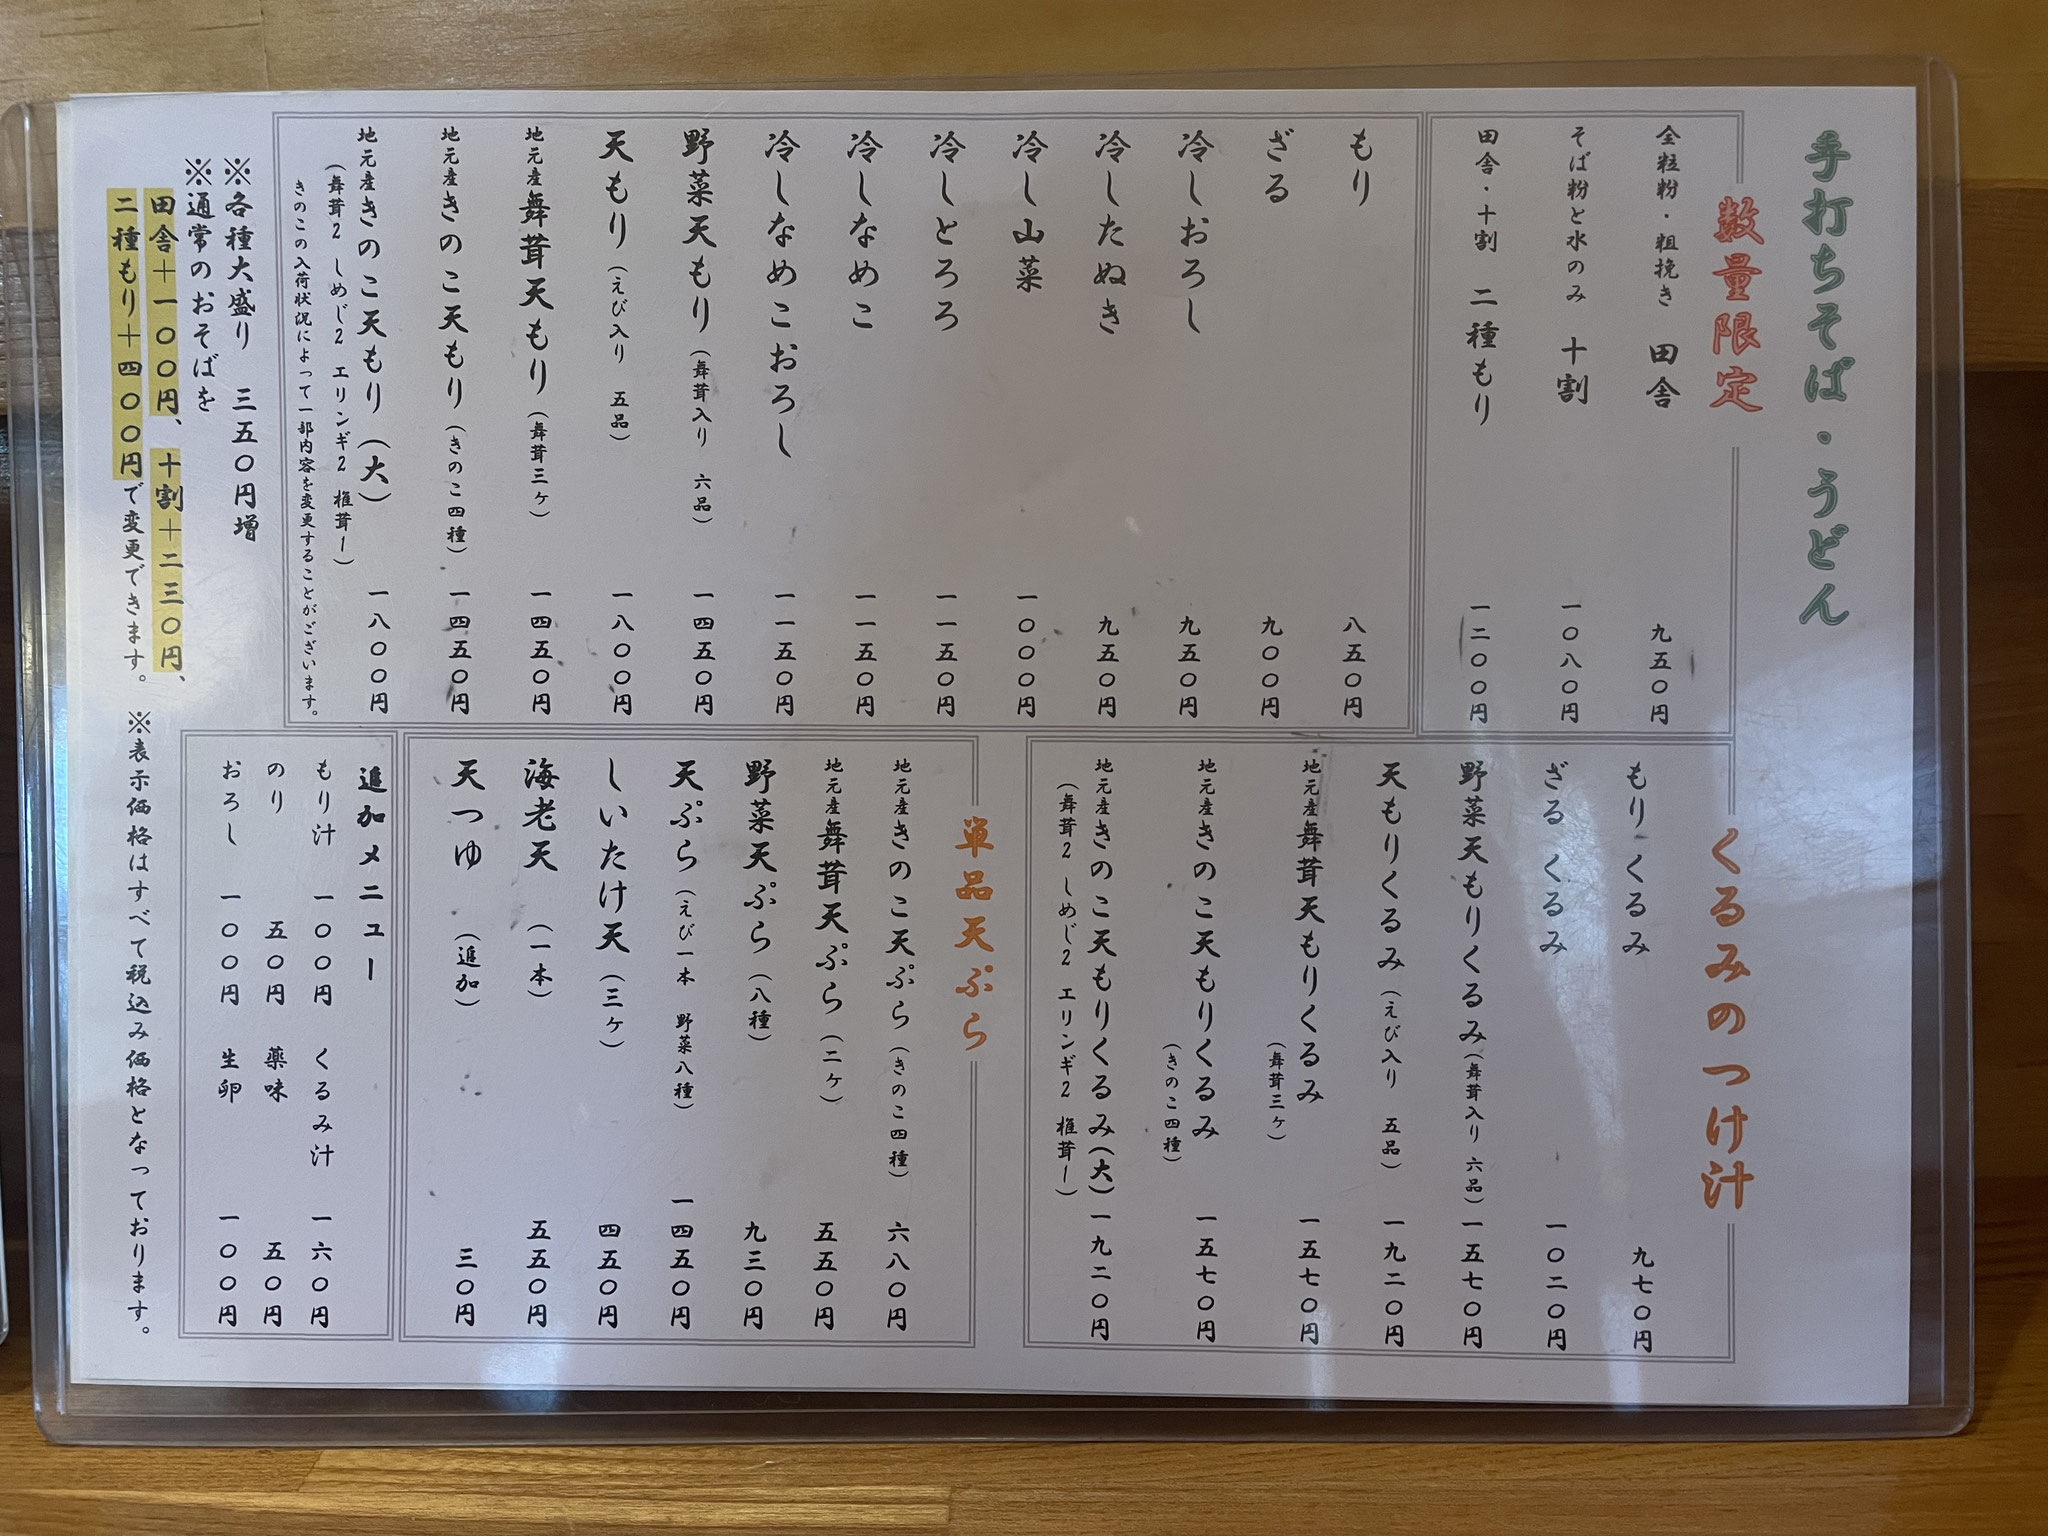 手打ちそば・うどん
数量限定
全粒粉・粗挽き 田舎 九五〇円
そば粉と水のみ 十割 一〇八〇円
田舎・十割 二種もり 一二〇〇円
もり 八五〇円
ざる 九〇〇円
冷しおろし 九五〇円
冷したぬき 九五〇円
冷し山菜 一〇〇〇円
冷しとろろ 一一五〇円
冷しなめこ 一一五〇円
冷しなめこおろし 一一五〇円
野菜天もり(舞茸入り 六品) 一四五〇円
天もり(えび入り 五品) 一八〇〇円
地元産舞茸天もり(舞茸三ヶ) 一四五〇円
地元産きのこ天もり(きのこ四種) 一四五〇円
地元産きのこ天もり(大) 一八〇〇円
(舞茸2 しめじ2 エリンギ2 椎茸1)
きのこの入荷状況によって一部内容を変更することがございます。
くるみのつけ汁
もりくるみ 九七〇円
ざるくるみ 一〇二〇円
野菜天もりくるみ(舞茸入り 六品) 一五七〇円
天もりくるみ(えび入り 五品) 一九二〇円
地元産舞茸天もりくるみ 一五七〇円
(舞茸三ヶ)
地元産きのこ天もりくるみ 一五七〇円
(きのこ四種)
地元産きのこ天もりくるみ(大) 一九二〇円
(舞茸2 しめじ2 エリンギ2 椎茸1)
単品天ぷら
地元産きのこ天ぷら(きのこ四種) 六八〇円
地元産舞茸天ぷら(二ヶ) 五五〇円
野菜天ぷら(八種) 九三〇円
天ぷら(えび一本 野菜八種) 一四五〇円
しいたけ天(三ヶ) 四五〇円
海老天 (一本) 五五〇円
天つゆ (追加) 三〇円
追加メニュー
もり汁 一〇〇円 くるみ汁 一六〇円
のり 五〇円 薬味 五〇円
おろし 一〇〇円 生卵 一〇〇円
※各種大盛り 三五〇円増
※通常のおそばを
田舎+一〇〇円、十割+二三〇円、
二種もり+四〇〇円で変更できます。 ※表示価格はすべて税込み価格となっております。